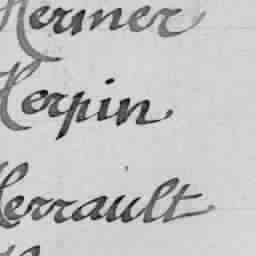 Hermer
Herpin
Herrault